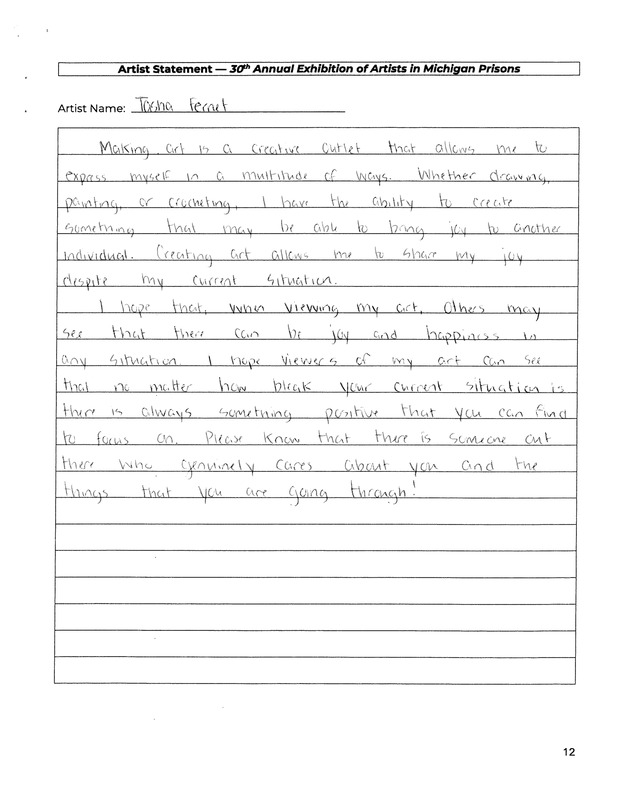 Artist Statement — 30th Annual Exhibition of Artists in Michigan Prisons
Artist Name: Tasha Fernet
Making art is a creative outlet that allows me to
express myself in a multitude of ways. Whether drawing,
painting, or crocheting, I have the ability to create
something that may be able to bring joy to another
individual. Creating art allows me to share my joy
despite my current situation.
I hope that, when viewing my art, others may
see that there can be joy and happiness in
any situation. I hope viewers of my art can see
that no matter how bleak your current situation is
there is always something positive that you can find
to focus on. Please know that there is someone out
there who genuinely cares about you and the
things that you are going through!
12